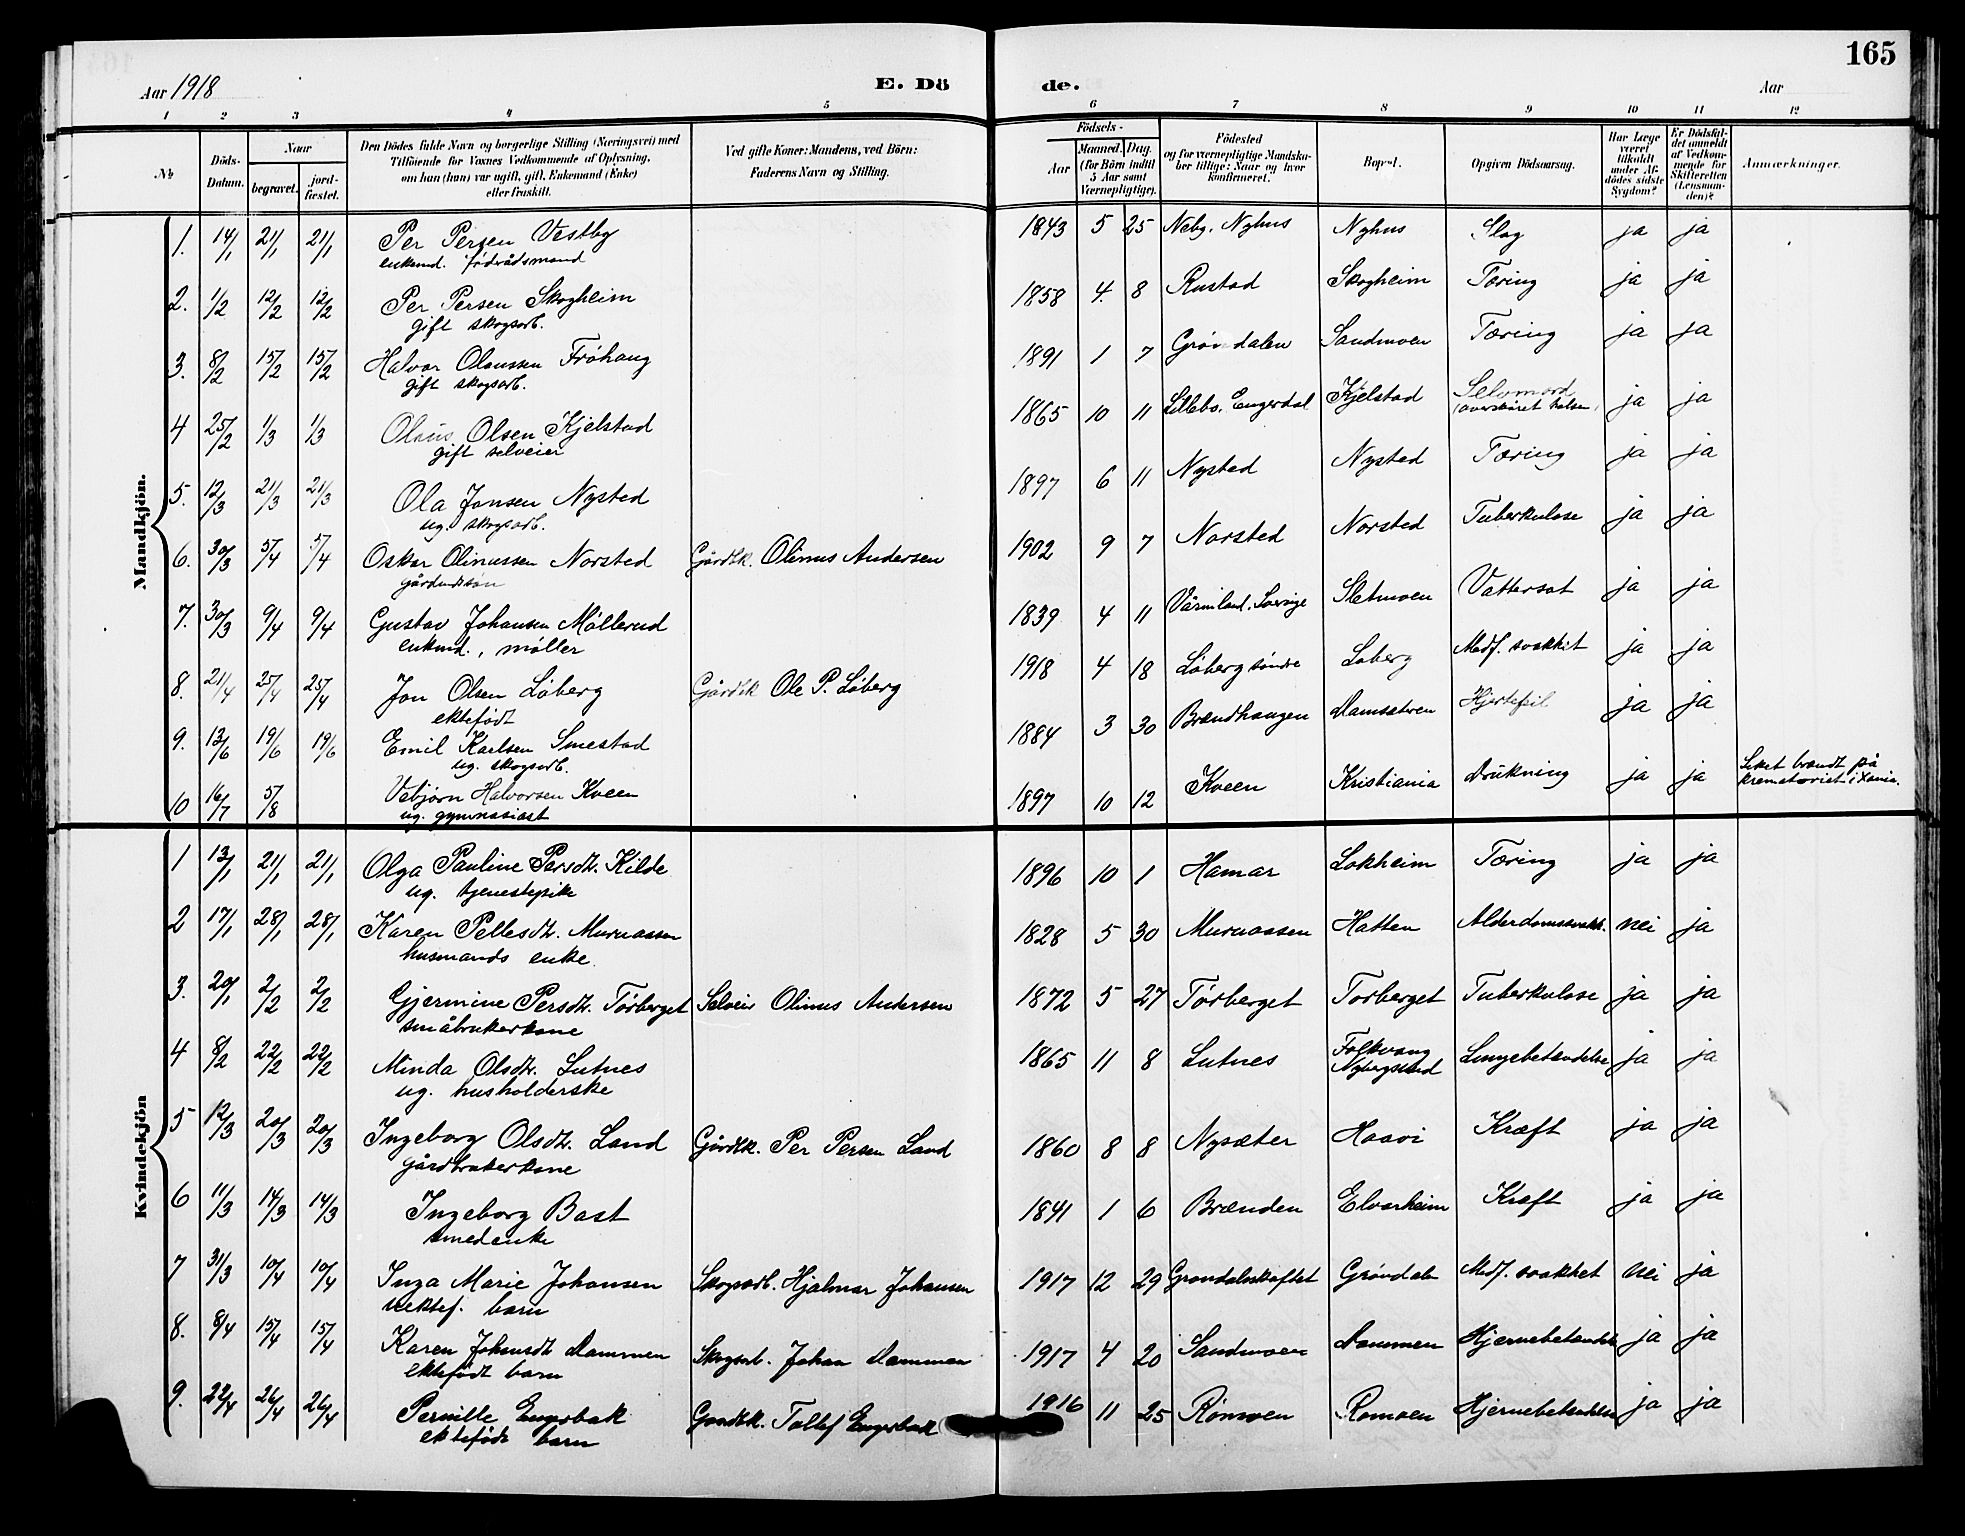 165
Aar 1918
E. Dö de.
Aar
1 2 3 4 5 6 7 8 9 10 11 12
№
Döds-Datum.
Naar
begravet.
jord-fæstet.
Den Dödes fulde Navn og borgerlige Stilling (Næringsvei) med
Tilföiende for Voxnes Vedkommende af Oplysning,
om han (hun) var ugift, gift, Enkemand (Enke)
eller fraskilt.
Ved gifte Koner: Mandens, ved Börn:
Faderens Navn og Stilling.
Födsels-
Aar
Maaned. Dag.
(for Börn indtil
5 Aar samt
Værnepligtige).
Födested
og for værnepligtige Mandska-
ber tillige: Naar og hvor
konfirmeret.
Bopæl.
Opgiven Dödsaarsag.
Har Læge
været
tilkaldt
under Af-
dödes sidste
Sygdom?
Er Dödsfal-
det anmeldt
af Vedkom-
mende for
Skifteretten
(Lensman-
den)?
Anmærkninger.
Mandkjön.
1. 14/1 21/1 21/1 Per Persen Vestby 1843 5 25 Nybg. Nyhus Nyhus Slag ja ja
enkemd. föderådsmand
2. 1/2 12/2 12/2 Per Persen Skogheim 1858 4. 8 Rustad Skogheim Tæring ja ja
gift skogsarb.
3. 8/2 15/2 15/2 Halvor Olaussen Fröhaug 1891 1 7 Gröndalen Sandmoen Tæring ja ja
gift skogsarb.
4 25/2 1/3 1/3 Olaus Olsen Kjelstad 1865 10 11 Lillebo, Engerdal Kjelstad Selvmord (overskåret halsen) ja ja
gift selveier
5. 12/3 21/3 21/3 Ola Jonsen Nysted 1897 6 11 Nysted Nysted Tæring ja ja
ug. skogsarb.
6. 30/3 5/4 5/4 Oskar Olinussen Norsted Gårdbk. Olinus Andersen 1902 9 7 Norsted Norsted Tuberkulose ja ja
7. 30/3 9/4 9/4 Gustav Johansen Möllerud 1839 4 11 Värmland, Sverige Sletmoen Vattersot ja ja
enkemd., møller
8. 21/4 25/4 25/4 Jon Olsen Löberg Gårdbk Ole P. Löberg 1918 4 18 Löberg söndre Loberg Medf. svakhet ja ja
ektefödt
9. 13/6 19/6 19/6 Emil Karlsen Smestad 1884 3 30 Brændhaugen Damsætren Hjertefeil ja ja
ug. skogsarb.
10 16/7 5/8 Vebjörn Halvorsen Kveen 1897 10 12 Kveen Kristiania Drukning ja ja Liket brændt på
krematoriet i Xania.
ug. gymnasiast
Kvindekjön
1 13/1 21/1 21/1 Olga Pauline Persdtr. Kilde 1896 10 1 Hamar Lokheim Tæring ja ja
ug. tjenestepike
2 17/1 28/1 28/1 Karen Pellesdtr. Muruaasen 1828 5 30 Muruaasen Hatten Alderdomssvakh. nei ja
husmands enke.
3. 20/1 2/2 2/2 Gjermine Persdtr. Törberget Selveier Olinus Andersen 1872 5 27 Törberget Torberget Tuberkulose ja ja
småbrukerkone
4 8/2 22/2 22/2 Minda Olsdtr. Lutnes 1865 11 8 Lutnes Folkvang Nybergsund Lungebetændelse ja ja
ug. husholderske
5 12/3 20/3 20/3 Ingeborg Olsdtr. Land Gårdbk. Per Persen Land 1860 8 8 Nysæter Haavi Kræft ja ja
gårdbrukerkone
6 11/3 14/3 14/3 Ingeborg Bast 1841 1 6 Brænden Elvarheim Kræft ja ja
smedenke
7 31/3 10/4 10/4 Inga Marie Johansen Skogsarb. Hjalmar Johansen 1917 12 29 Grøndalskoftet Gröndalen Medf. svakhet nei ja
uektef. barn
8. 8/4 15/4 15/4 Karen Johansdt Dammen Skogsarb. Johan Dammen 1917 4 20 Sandmoen Dammen Hjernebetændelse ja ja
ektefödt barn
9. 22/4 26/4 26/4 Pernille Engerbak Gardbk. Tollef Engerbak 1916 11 25 Rönmoen Romoen Hjernebetændelse ja ja
ektefödt barn